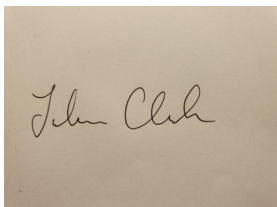 John Clark